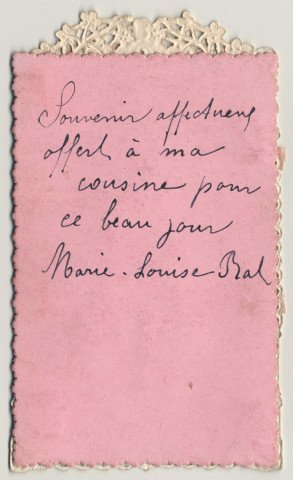 Souvenir affectueux
offert à ma
cousine pour
ce beau jour
Marie-Louise